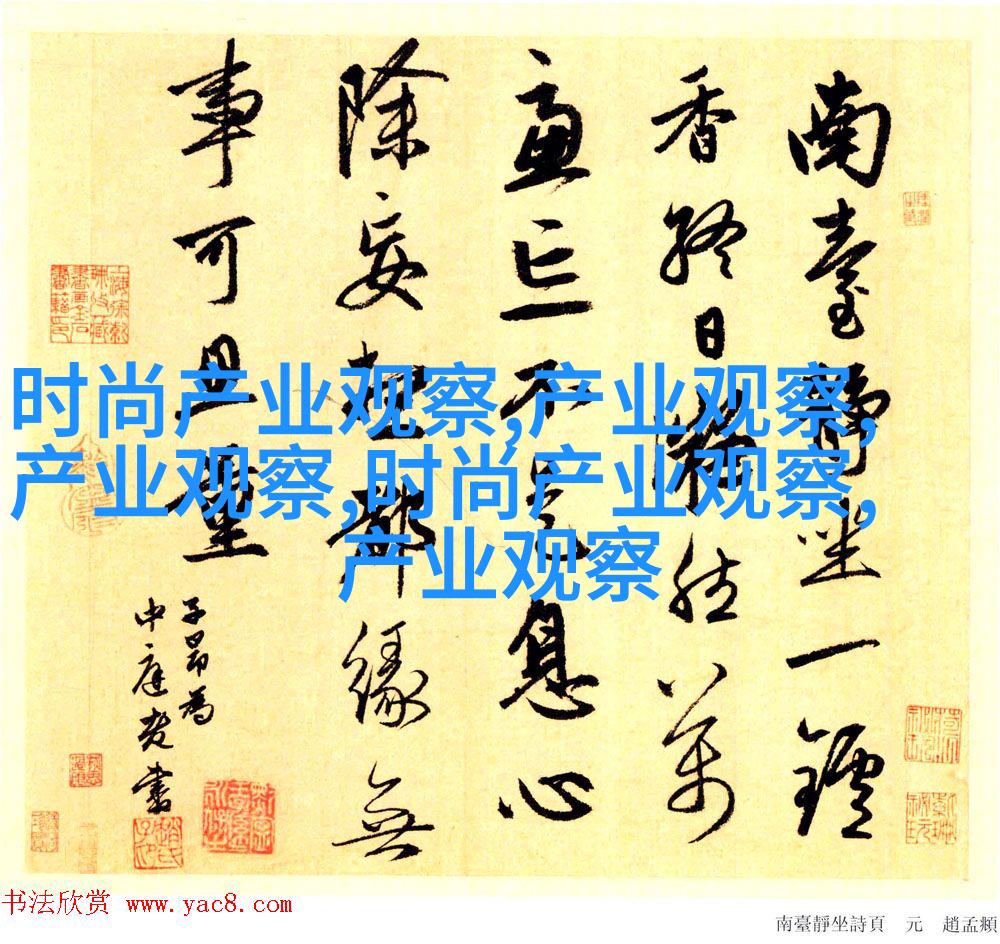 南臺靜坐一鑪
香終日凝然萬
慮亡不是息心
除妄想都緣無
事可思量
子昂為
中庭老書
时尚产业观察,产业观察,
产业观察,时尚产业观察,
产业观察
书法欣赏 www.yac8.com
南臺靜坐詩頁 元 趙孟頫